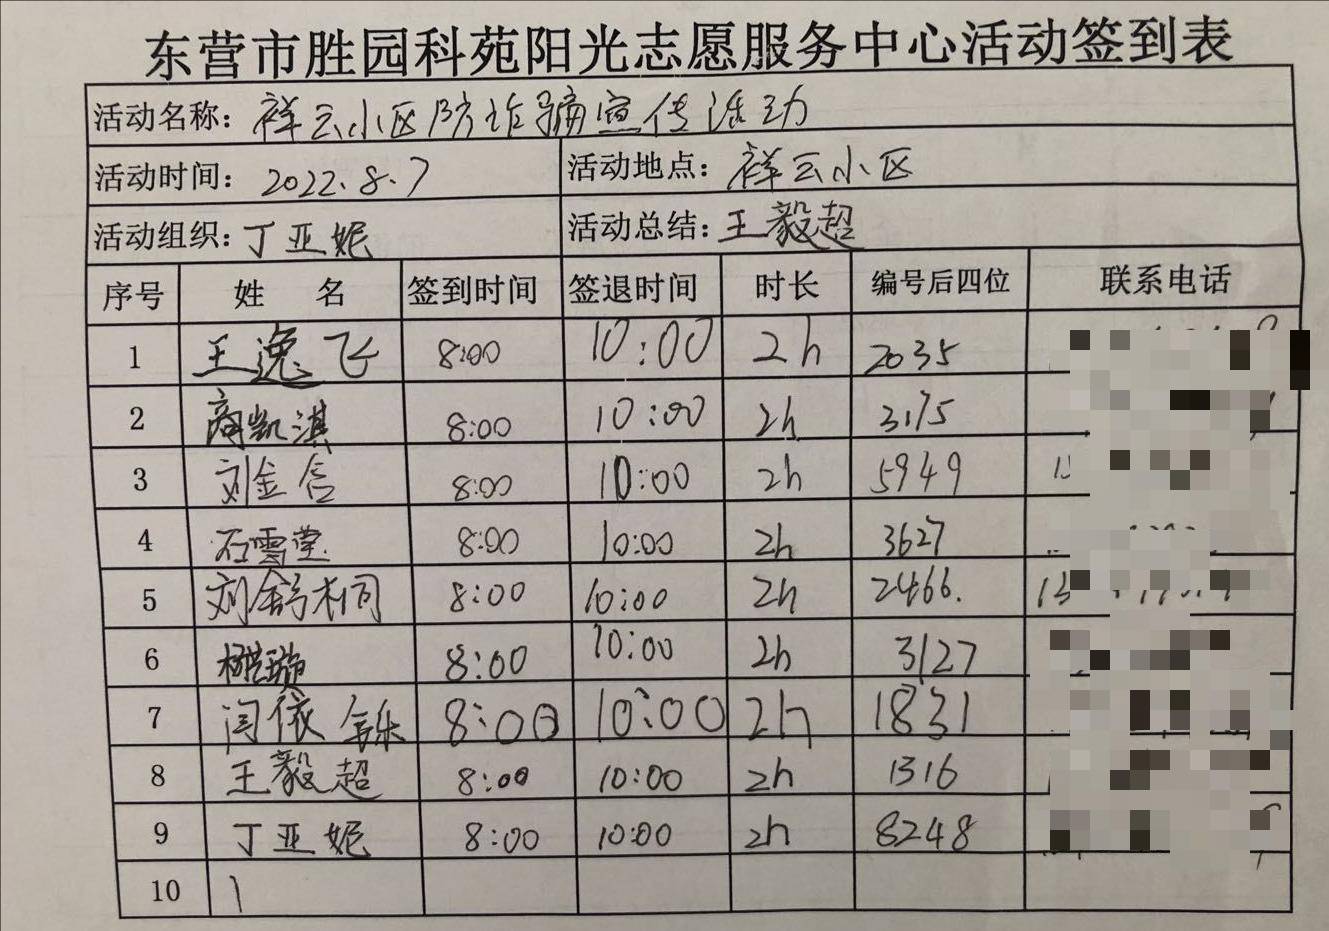 东营市胜园科苑阳光志愿服务中心活动签到表
活动名称: 祥云小区防诈骗宣传活动
活动时间: 2022.8.7 活动地点: 祥云小区
活动组织: 丁亚妮 活动总结: 王毅超
序号 姓 名 签到时间 签退时间 时长 编号后四位 联系电话
1 王逸飞 8:00 10:00 2h 2035
2 商凯淇 8:00 10:00 2h 3175
3 刘金含 8:00 10:00 2h 5949
4 石雪莹 8:00 10:00 2h 3627
5 刘舒桐 8:00 10:00 2h 2466. 13
6 8:00 10:00 2h 3127
7 闫依铄 8:00 10:00 2h 1831
8 王毅超 8:00 10:00 2h 1316
9 丁亚妮 8:00 10:00 2h 8248
10